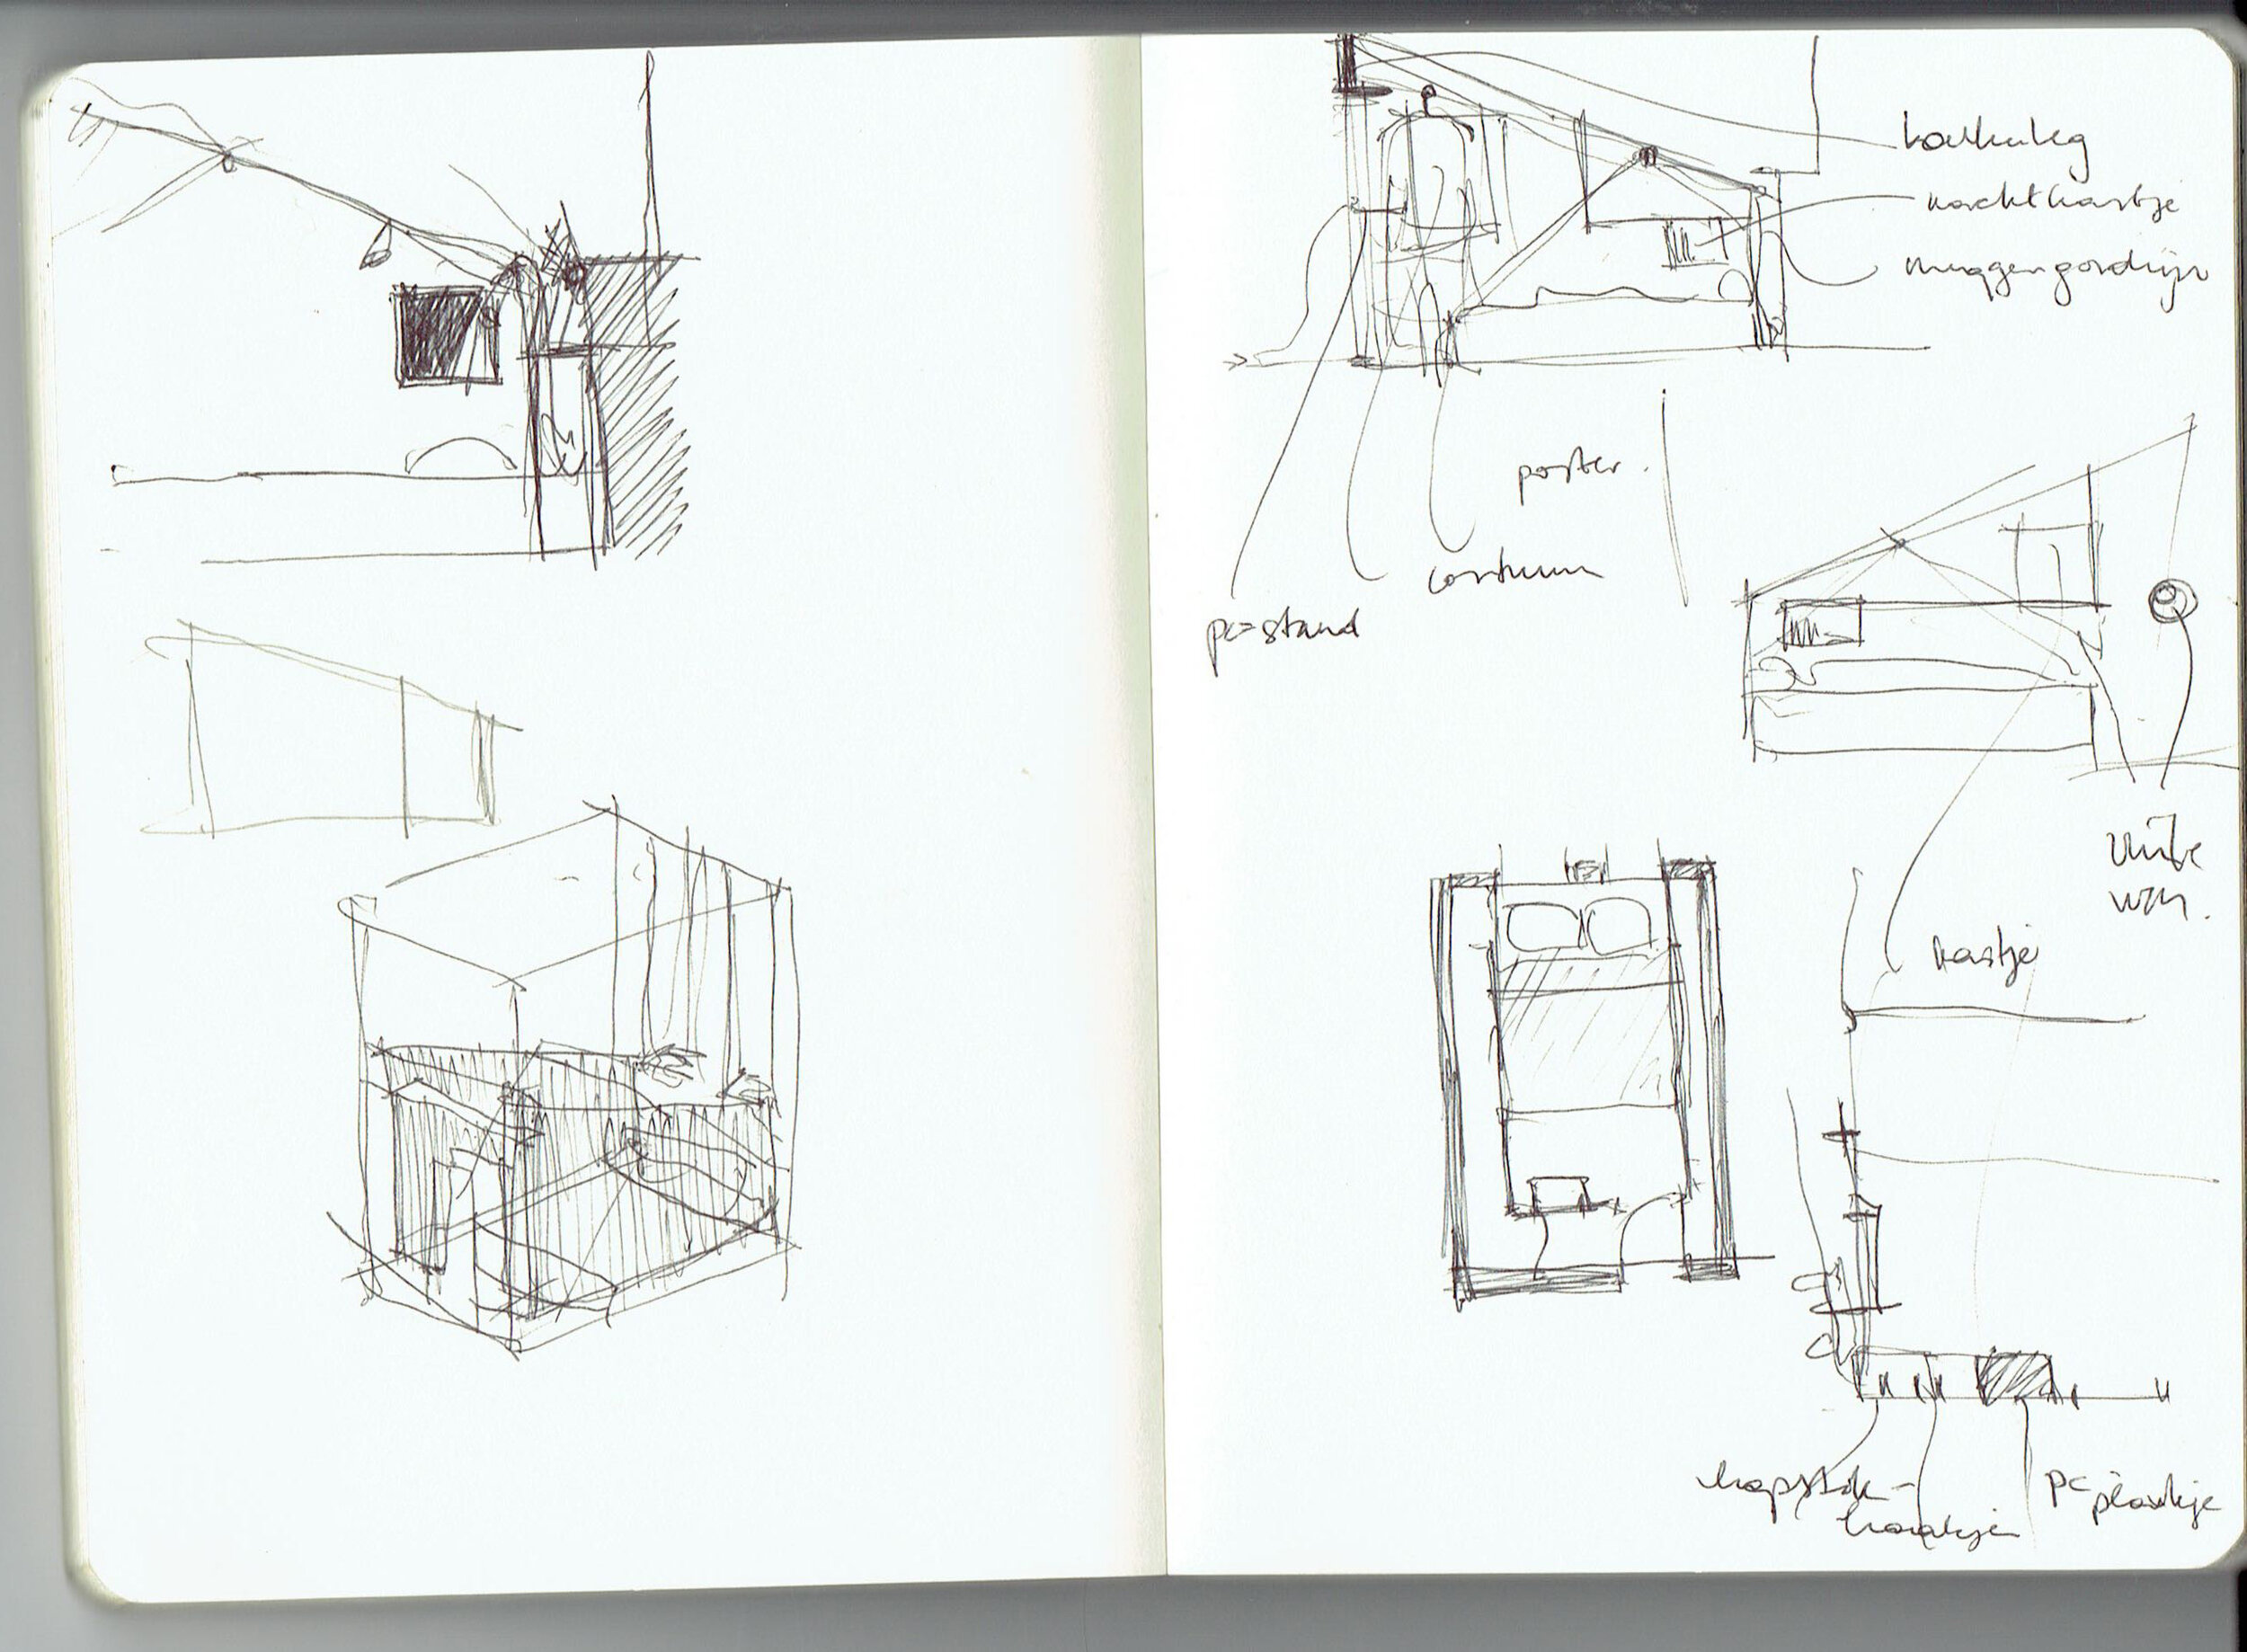 nachtkastje
muggengordijn
poster
costuum
pc-stand
witte
kastje
kapstok-
haakjes
pc
plankje